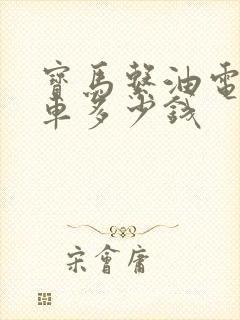 寶馬繫油電
車多少錢
宋會庸